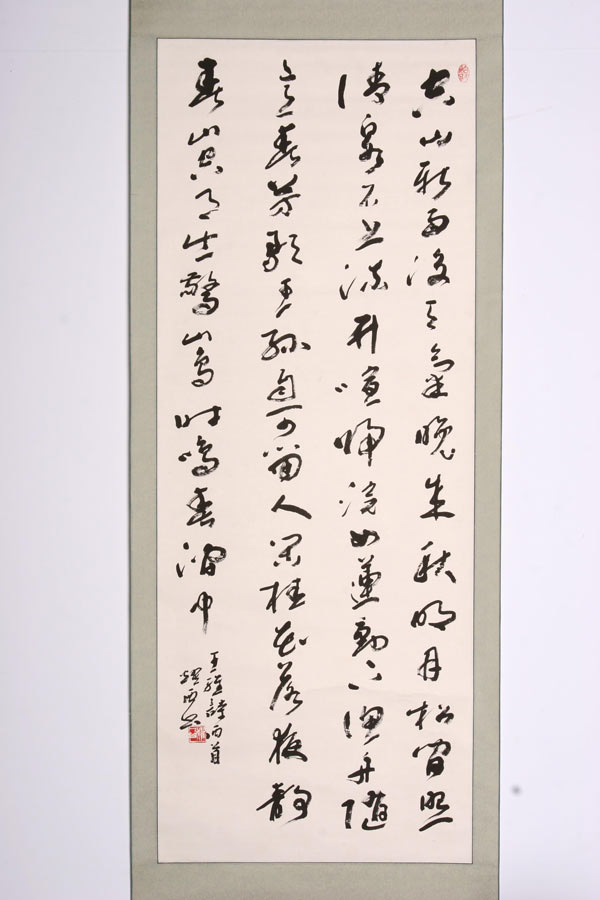 空山新雨後天氣晚来秋明月松间照
清泉石上流竹喧歸浣女蓮動下渔舟隨
意春芳歇王孫自可留人闲桂花落夜静
春山空月出驚山鳥时鳴春澗中
王維詩两首
西书